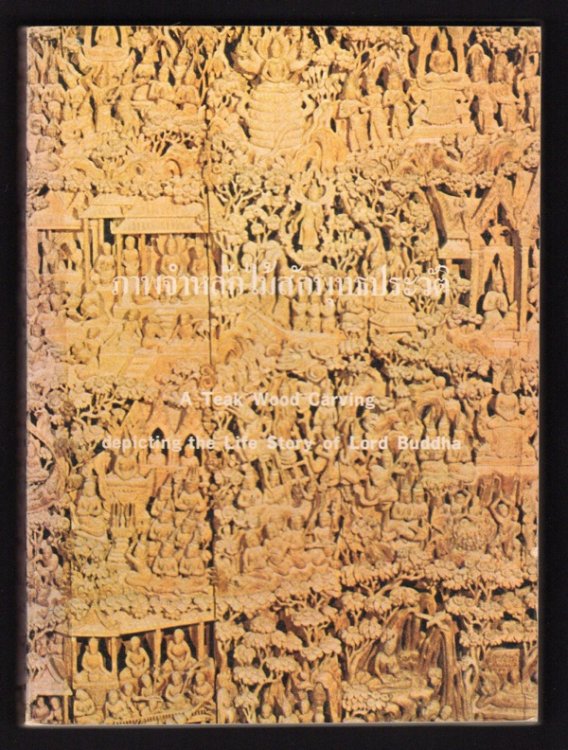 ภาพจำหลักไม้สักพุทธประวัติ
A Teak Wood Carving
depicting the Life Story of Lord Buddha